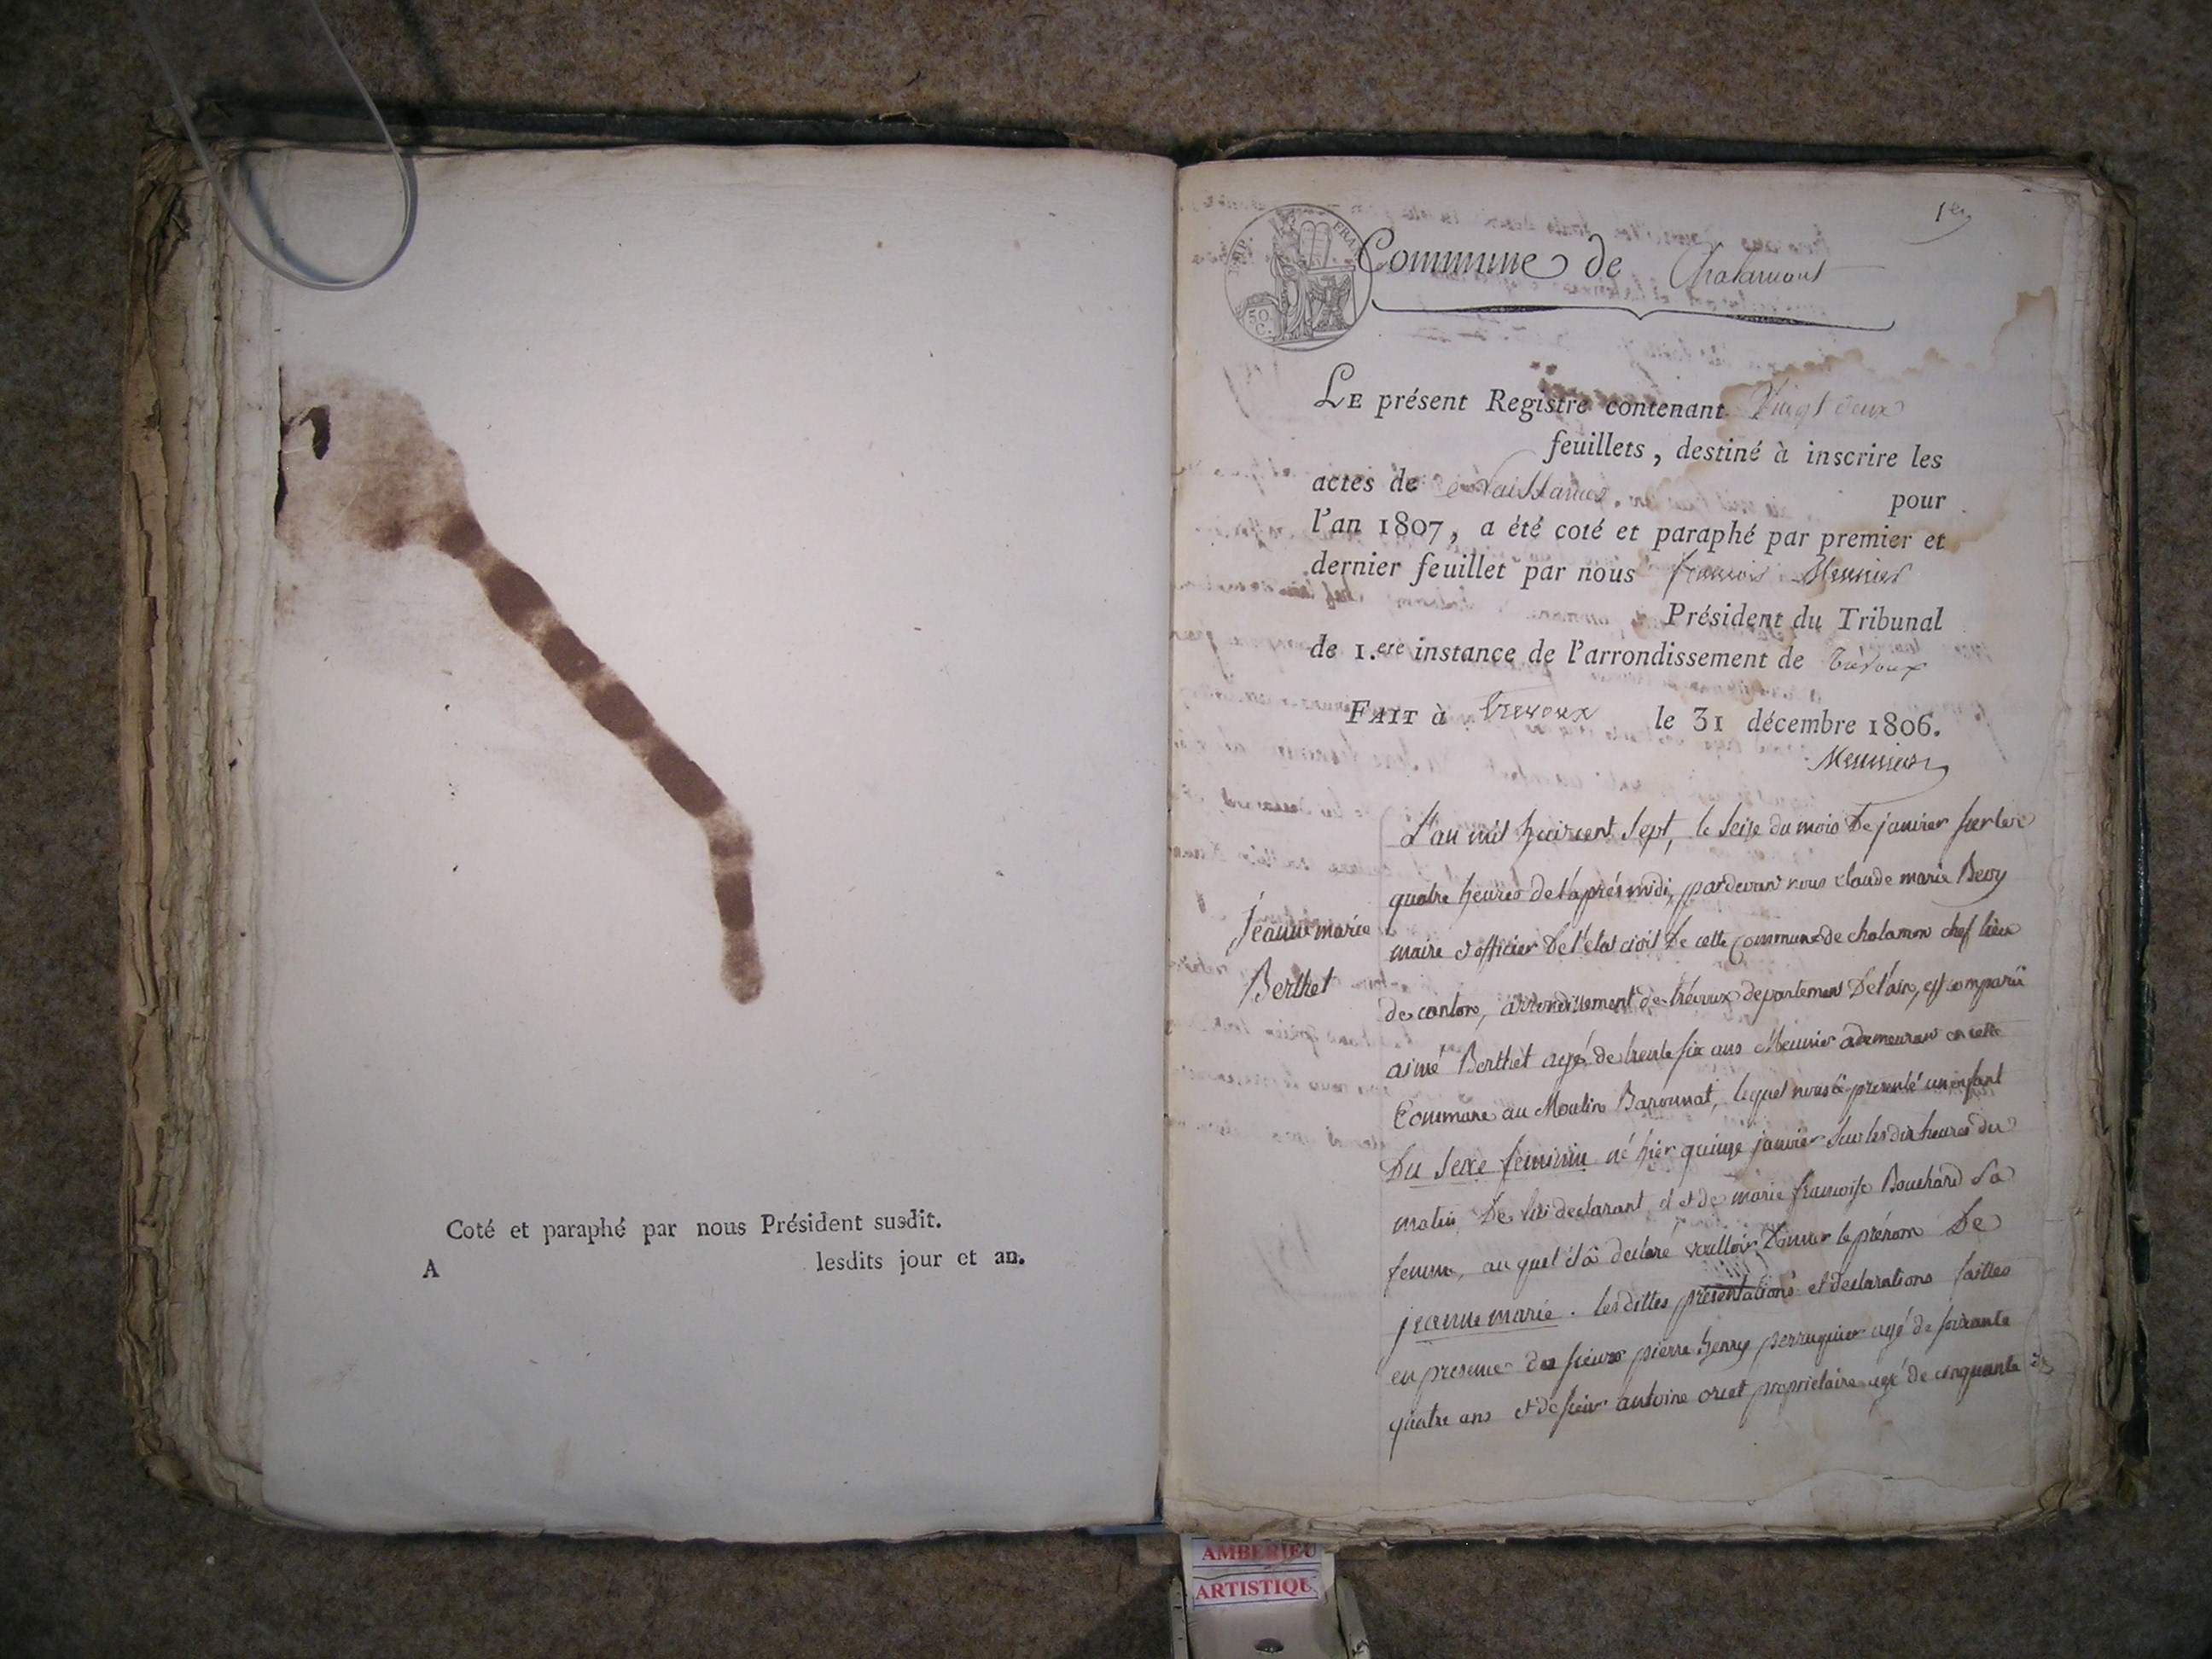 Coté et paraphé par nous Président susdit.
A lesdits jour et an.
1er
EMP. FRAN
50 C.
Commune de Chalamont
LE présent Registre contenant Vingt deux
feuillets, destiné à inscrire les
actes de Naissances. pour
l'an 1807, a été coté et paraphé par premier et
dernier feuillet par nous françois Meunier
Président du Tribunal
de 1.ere instance de l'arrondissement de Trévoux
FAIT à Trevoux le 31 décembre 1806.
Meunier
L'an mil huit cent sept, le seize du mois de janvier sur les
quatre heures de l'après midi, pardevant nous Claude marie
maire & officier de l'état civil de cette Commune de chalamon chef lieu
de canton, arrondissement de trévoux departement de l'ain, est comparu
aimé Berthet agé de trente six ans Meunier demeurant en cette
Commune au Moulin Baronnat, lequel nous à presenté un enfant
du sexe feminin né hier quinze janvier sur les dix heures du
matin, de lui declarant et de marie françoise Bouchard sa
femme, au quel il à declaré voulloir donner le prénom de
jeanne marie. les dittes présentations et declarations faittes
en presence des sieurs pierre henry perruquier agé de soixante
quatre ans et de sieur antoine oriet proprietaire agé de cinquante
Jeanne marie
Berthet
AMBERIEU
ARTISTIQU